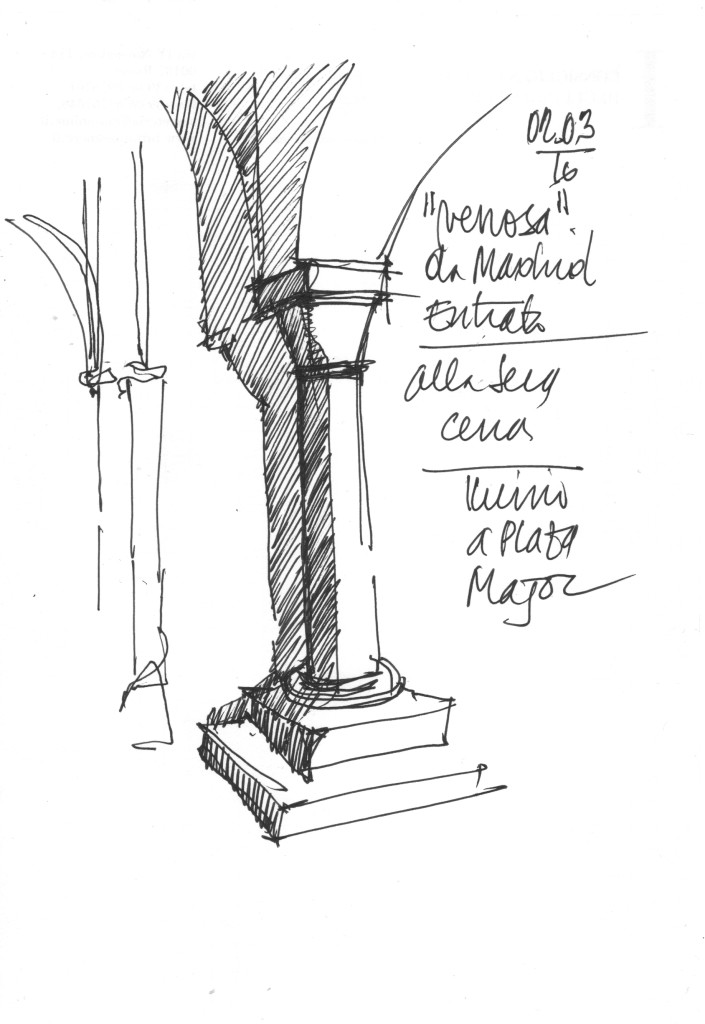 02.03
16
"venosa"
da Madrid
Entrato
alla Sera
cena
vicino
a Plaza
Major